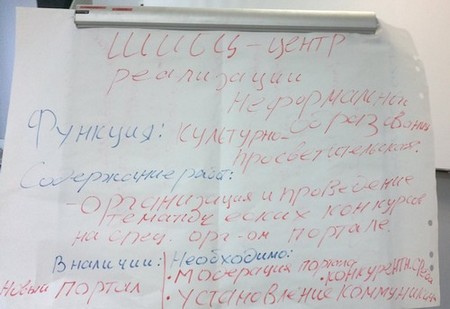 ШИБЦ - центр
реализации
неформальной
Функция: культурно- образования
просветительская.
Содержание работ:
- организация и проведение
тематических конкурсов
на спец. орг-ом портале.
В наличии: Необходимо:
новый портал • модерация портала
• конкурентн
• установление коммуникац